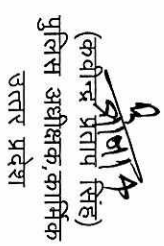 (कवीन्द्र प्रताप सिंह)
पुलिस अधीक्षक,कार्मिक
उत्तर प्रदेश